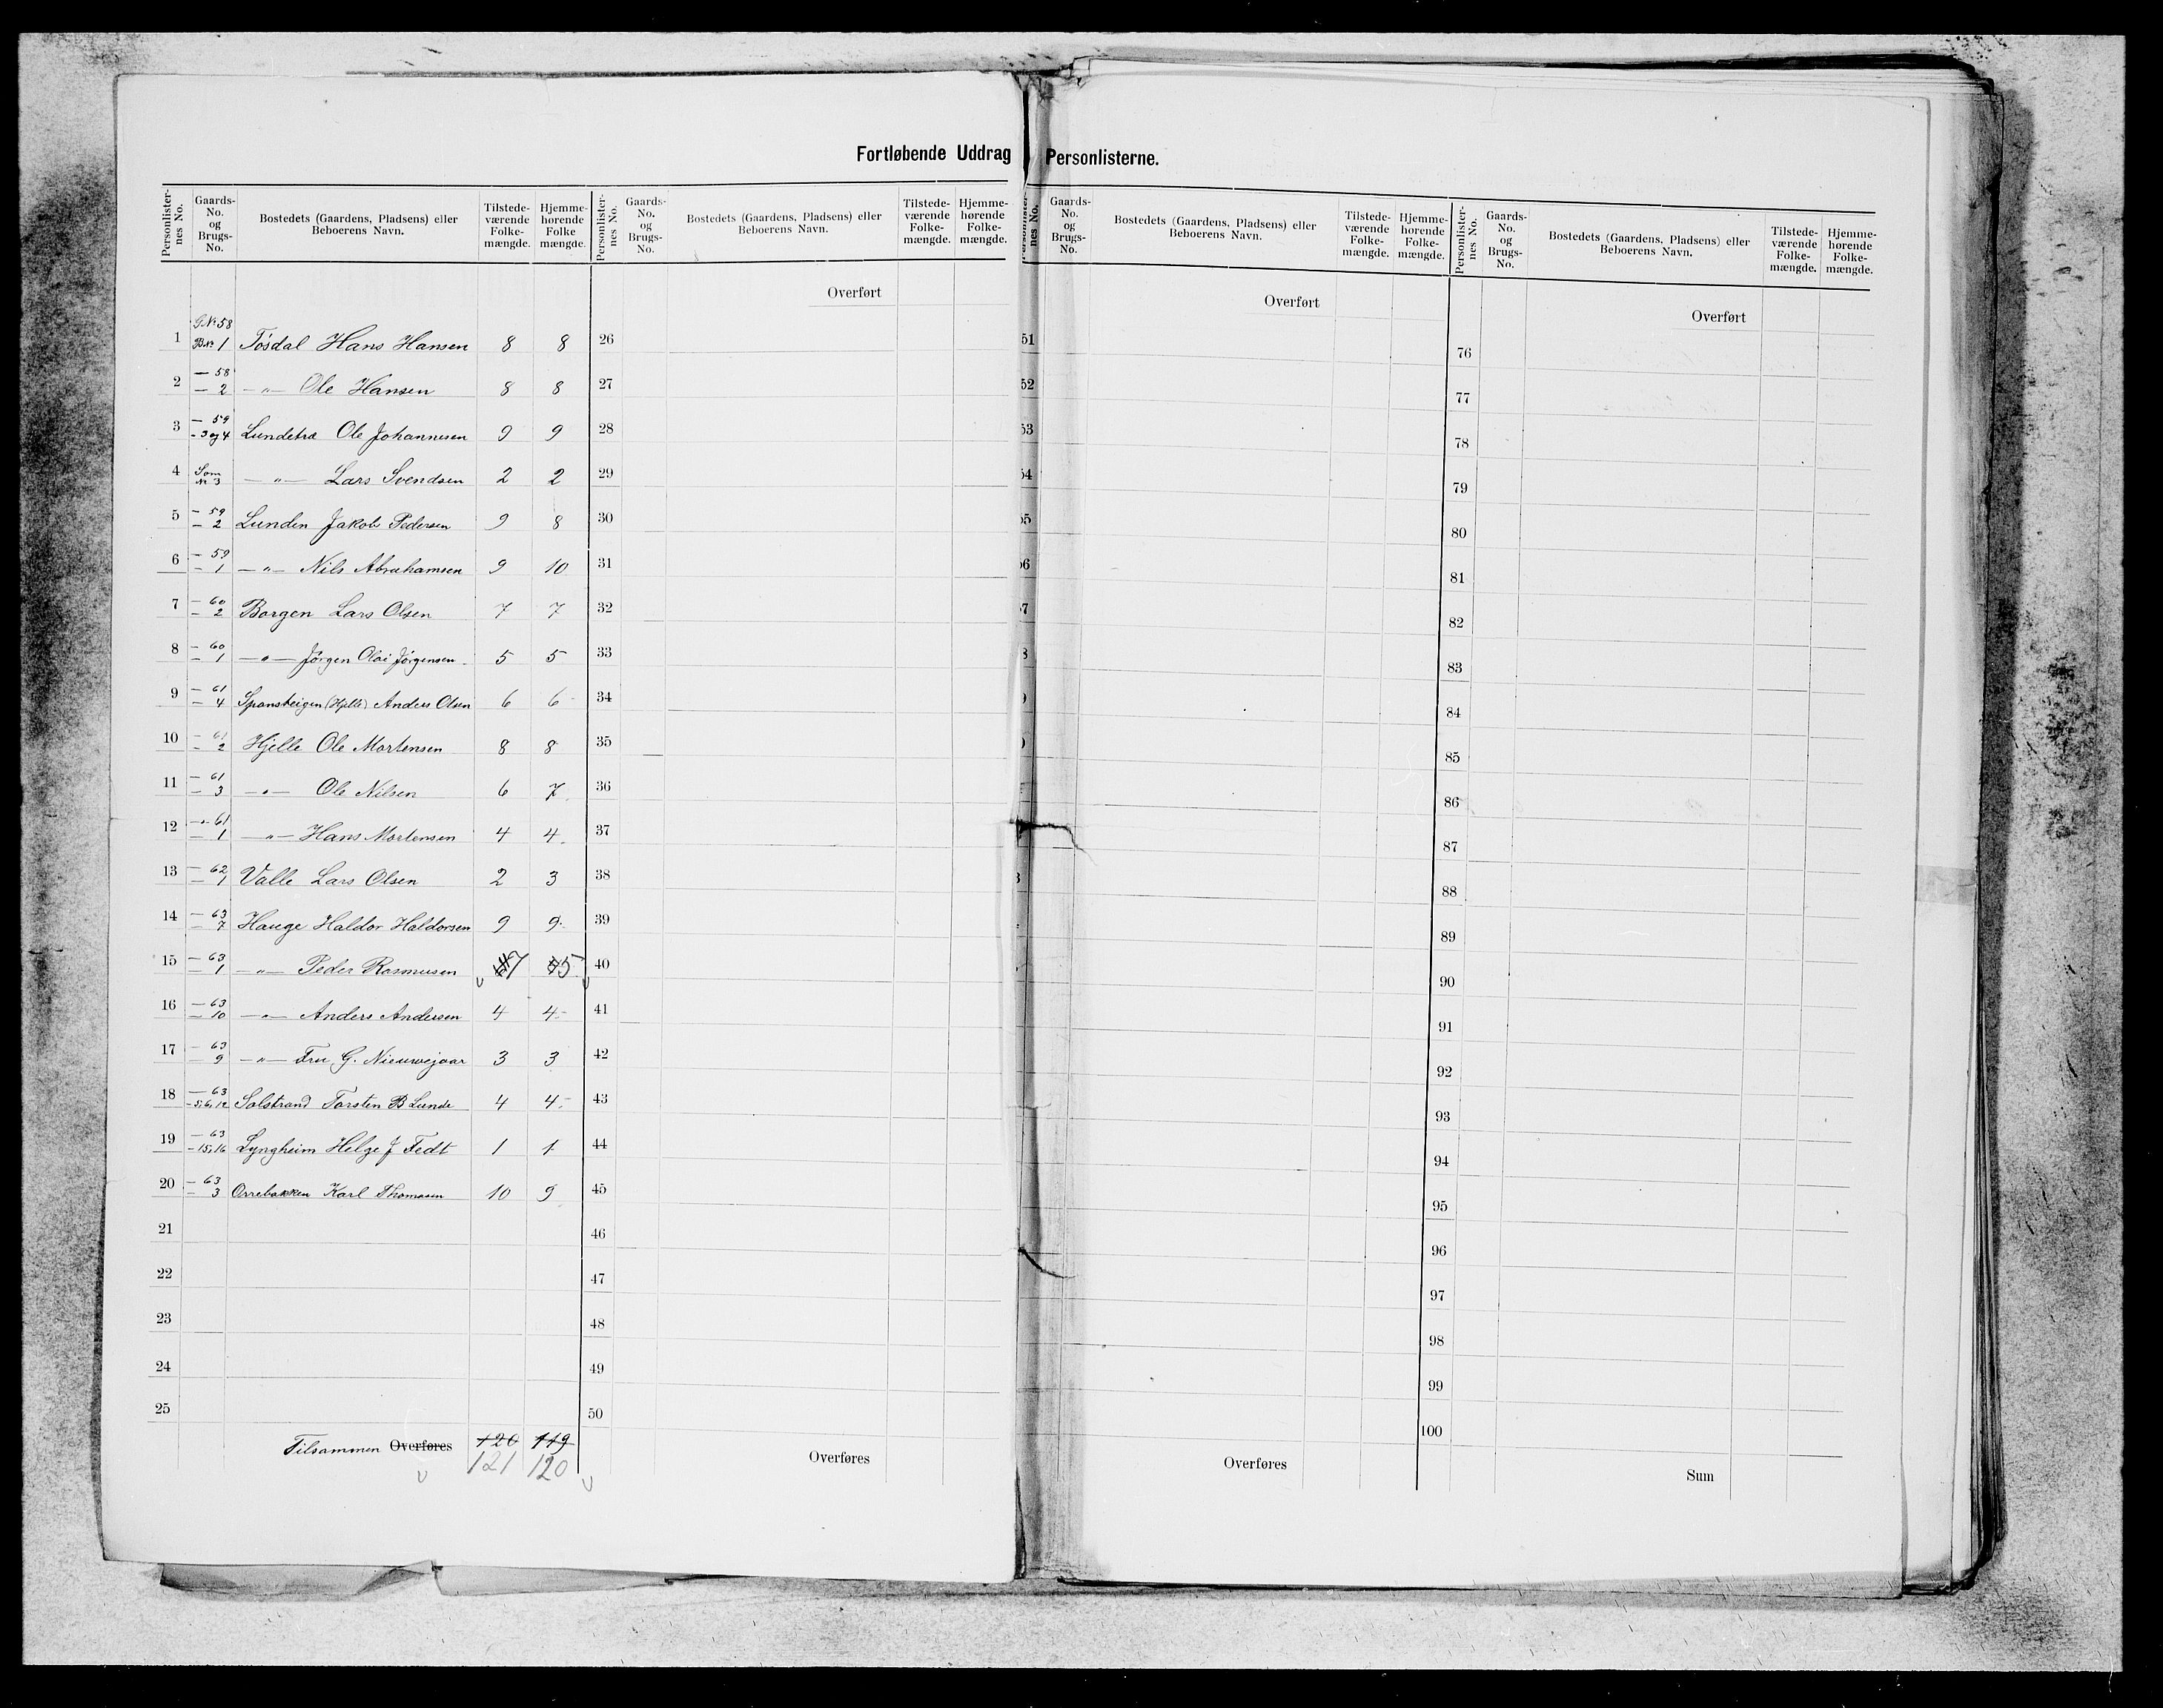 Fortløbende Uddrag Personlisterne.
Personlister-nes No. Gaards-No. og Brugs-No. Bostedets (Gaardens, Pladsens) eller Beboerens Navn. Tilstede-værende Folke-mængde. Hjemme-hørende Folke mængde.
G.No 58
1 B.No 1 Tösdal Hans Hansen 8 8
— 58
2 — 2 —„— Ole Hansen 8 8
— 59
3 - 3 og 4 Lundetræ Ole Johannesen 9 9
Som
4 No 3 —„— Lars Svendsen 2 2
— 59
5 — 2 Lunden Jakob Pedersen 9 8
— 59
6 — 1 —„— Nils Abrahamsen 9 10
— 60
7 — 2 Borgen Lars Olsen 7 7
— 60
8 — 1 —„— Jörgen Olai Jörgensen 5 5
— 61
9 — 4 Sponsteigen (Hjelle) Anders Olsen 6 6
— 61
10 — 2 Hjelle Ole Mortensen 8 8
— 61
11 — 3 —„— Ole Nilsen 6 7
—„ 61
12 — 1 —„— Hans Mortensen 4 4
— 62
13 — 1 Valle Lars Olsen 2 3
— 63
14 — 7 Hauge Haldor Haldorsen 9 9
— 63
15 — 1 —„— Peder Rasmusen 7 5
— 63
16 — 10 —„— Anders Andersen 4 4
— 63
17 — 9 —„— Fru G. Nieuwejaar 3 3
— 63
18 - 5,6,12 Solstrand Torsten B Lunde 4 4
— 63
19 - 15,16 Lyngheim Helge J Fedt 1 1
— 63
20 — 3 Orrebakken Karl Thomasen 10 9
21
22
23
24
25
Tilsammen Overføres 120 119
121 120
Personlister-nes No. Gaards-No. og Brugs-No. Bostedets (Gaardens, Pladsens) eller Beboerens Navn. Tilstede-værende Folke-mængde. Hjemme-hørende Folke-mængde.
Overført
26
27
28
29
30
31
32
33
34
35
36
37
38
39
40
41
42
43
44
45
46
47
48
49
50
Overføres
nes No. Gaards-No. og Brugs-No. Bostedets (Gaardens, Pladsens) eller Beboerens Navn. Tilstede-værende Folke-mængde. Hjemme-hørende Folke-mængde.
Overført
51
52
53
54
55
56
57
Overføres
Personlister-nes No. Gaards-No. og Brugs-No. Bostedets (Gaardens, Pladsens) eller Beboerens Navn. Tilstede-værende Folke-mængde. Hjemme-hørende Folke-mængde.
Overført
76
77
78
79
80
81
82
83
84
85
86
87
88
89
90
91
92
93
94
95
96
97
98
99
100
Sum